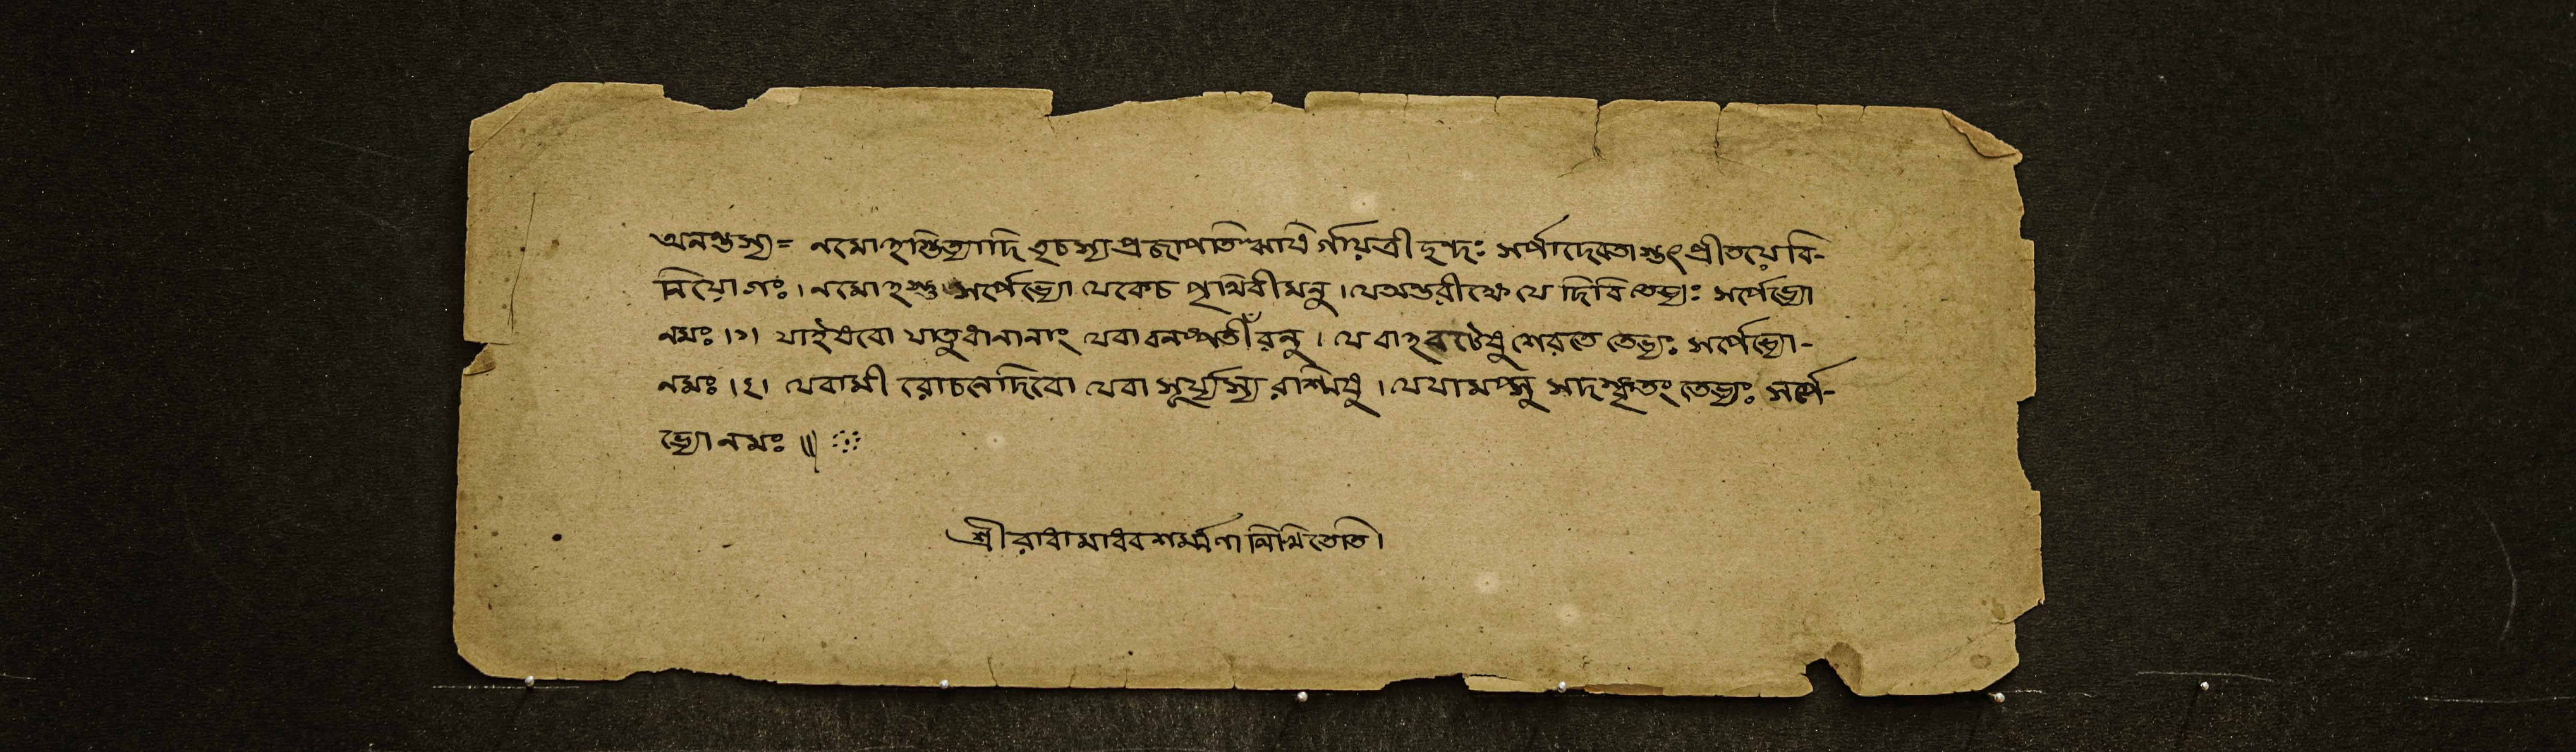 অনন্তস্য= নমোঽস্ত্বিত্যাদি ঋচস্য প্রজাপতিঋষির্গায়ত্রী ছন্দঃ সর্পাদেবতাস্তৎ প্রীতয়ে বি-
নিয়োগঃ। নমোঽস্তু সর্পেভ্যো যেকেচ পৃথিবীমনু। যেঅন্তরীক্ষে যে দিবি তেভ্যঃ সর্পেভ্যো
নমঃ।১। যাইষবো যাতুধানানাং যেবা বনস্পতীঁরনু। যে বাঽবটেষু শেরতে তেভ্যঃ সর্পেভ্যো-
নমঃ।২। যেবামী রোচনেদিবো যেবা সূর্য্যস্য রশ্মিষু। যেষামপ্সু সদস্কৃতং তেভ্যঃ সর্পে-
ভ্যোনমঃ॥
শ্রীরাধামাধবশর্ম্মণা লিখিতেতি।